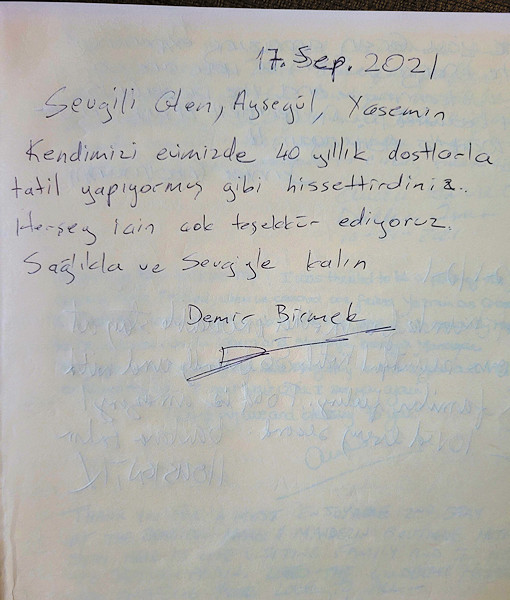 17. Sep. 2021
Sevgili Glen, Ayşegül, Yasemin
Kendimizi evimizde 40 yıllık dostlarla
tatil yapıyormuş gibi hissettirdiniz..
Herşey için çok teşekkür ediyoruz.
Sağlıkla ve Sevgiyle kalın
Demir Birmek